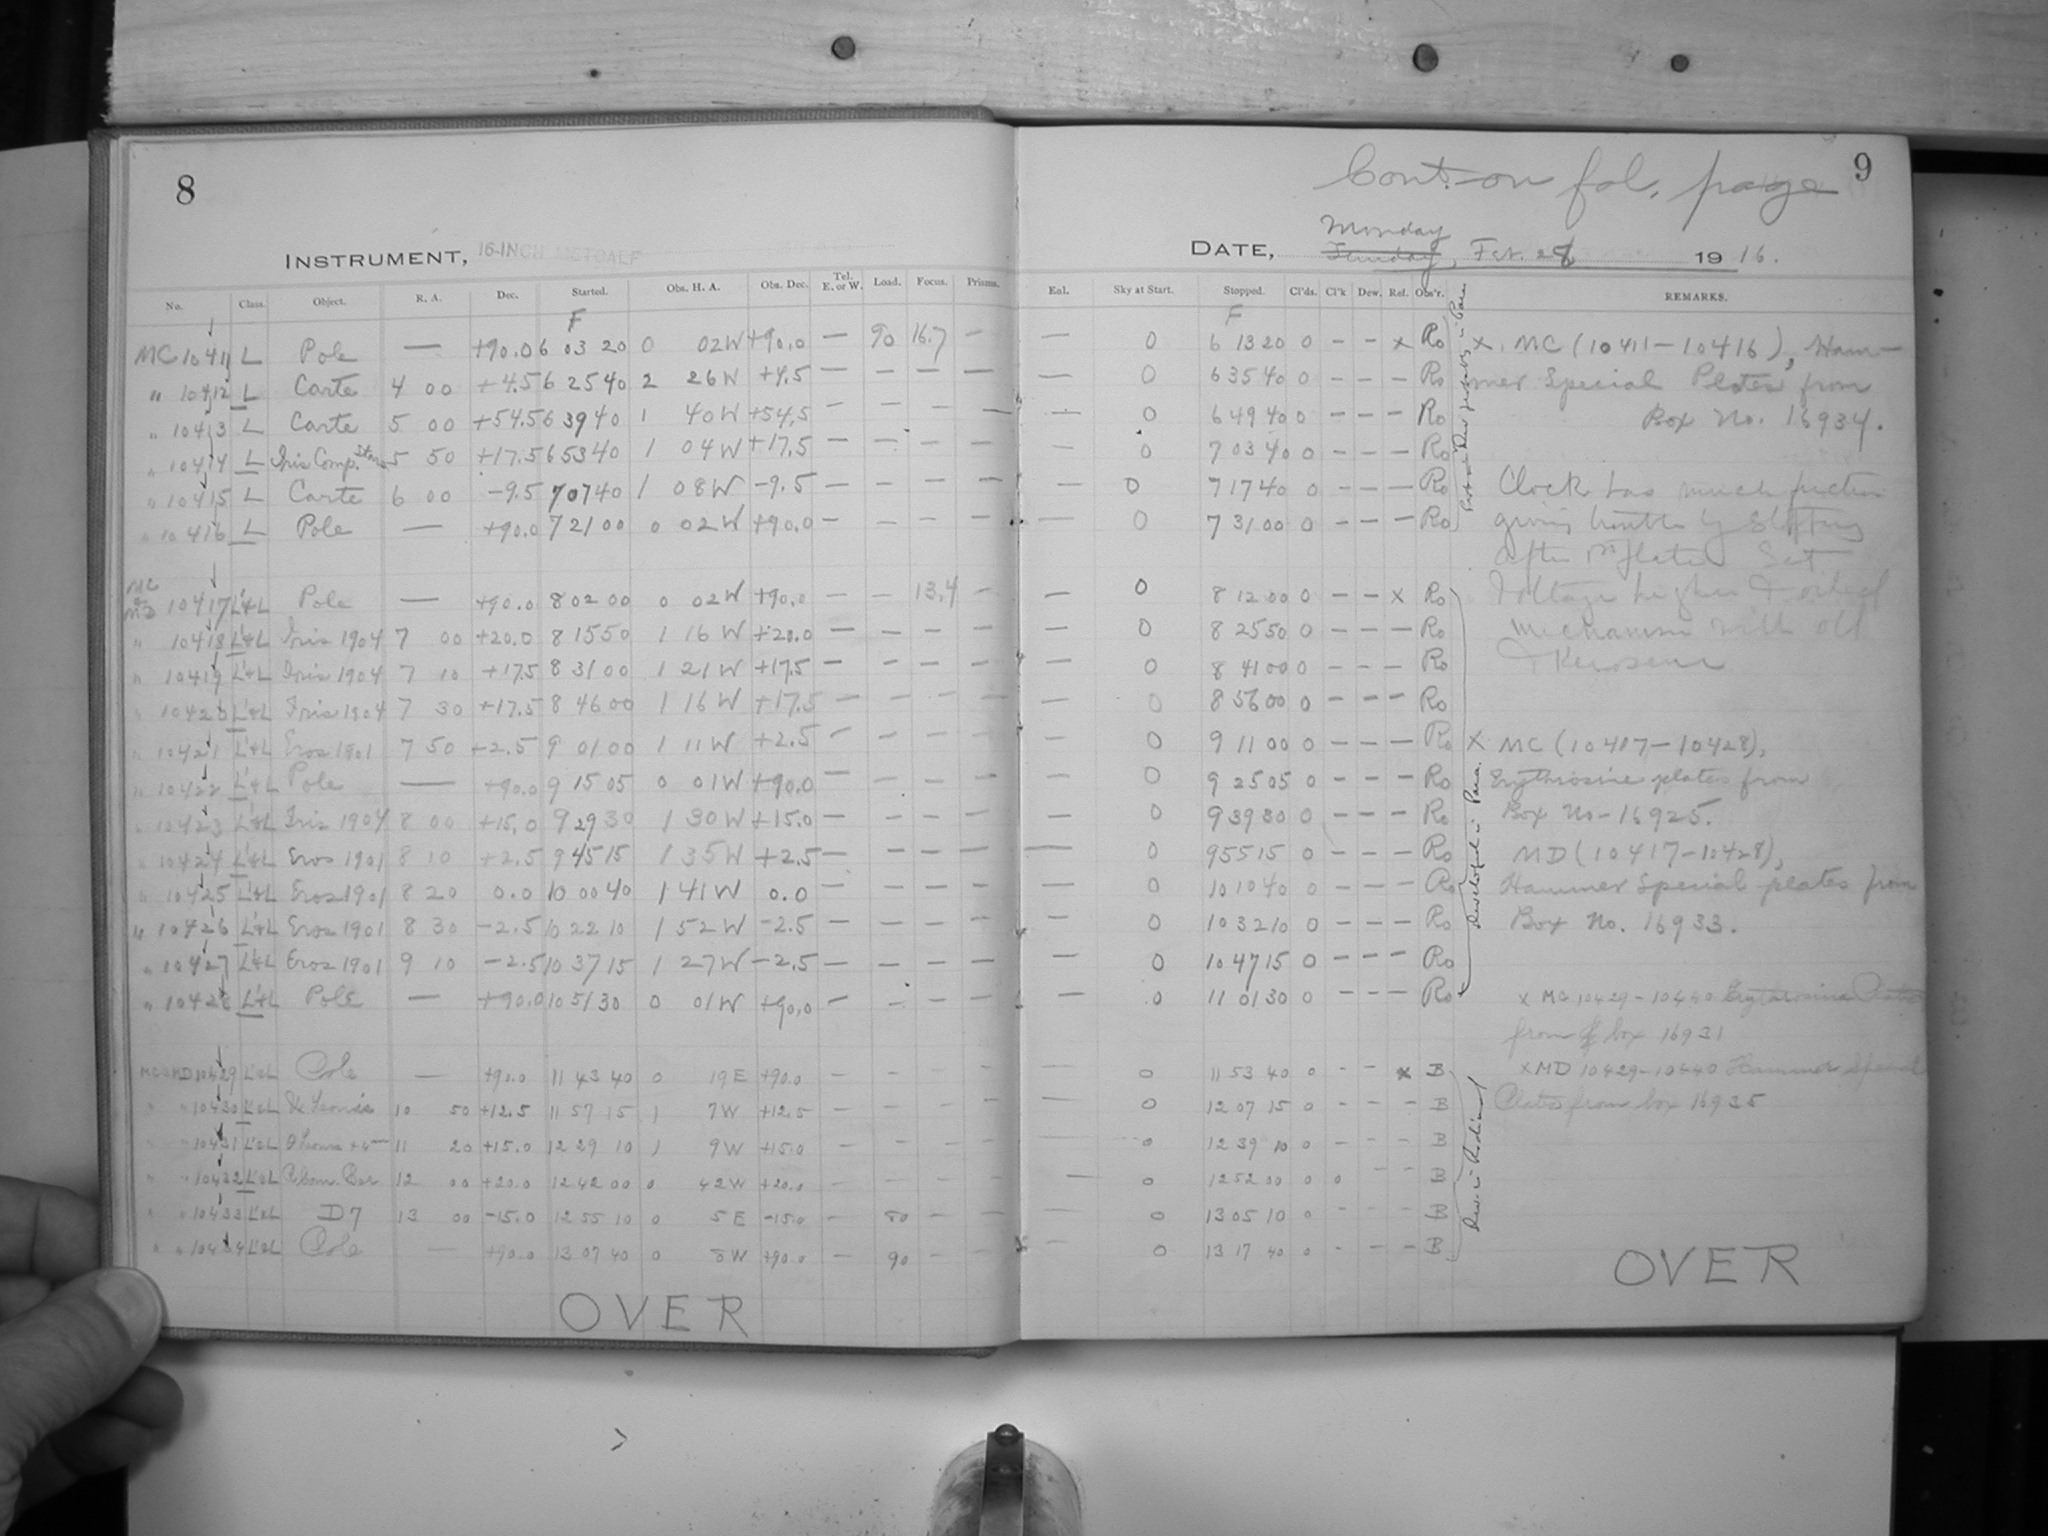 8
INSTRUMENT, 16-INCH METCALF
No. Class. Object. R. A. Dec. Started. Obs. H. A. Obs. Dec. Tel. E. or W. Load. Focus. Prisms.
F
MC 10411 L Pole — +90.0 6 03 20 0 02W +90.0 — 90 16.7 —
" 10412 L Carte 4 00 +4.5 6 25 40 2 26W +4.5 — — — —
" 10413 L Carte 5 00 +54.5 6 39 40 1 40W +54.5 — — — —
" 10414 L Iris Comp. Stars 5 50 +17.5 6 53 40 1 04W +17.5 — — — —
" 10415 L Carte 6 00 -9.5 7 07 40 1 08W -9.5 — — — —
" 10416 L Pole — +90.0 7 21 00 0 02W +90.0 — — — —
MC & MD 10417 L'&L Pole — +90.0 8 02 00 0 02W +90.0 — — 13.4 —
" 10418 L'&L Iris 1904 7 00 +20.0 8 15 50 1 16W +20.0 — — — —
" 10419 L'&L Iris 1904 7 10 +17.5 8 31 00 1 21W +17.5 — — — —
" 10420 L'&L Iris 1904 7 30 +17.5 8 46 00 1 16W +17.5 — — — —
" 10421 L'&L Eros 1901 7 50 +2.5 9 01 00 1 11W +2.5 — — — —
" 10422 L'&L Pole — +90.0 9 15 05 0 01W +90.0 — — — —
" 10423 L'&L Iris 1904 8 00 +15.0 9 29 30 1 30W +15.0 — — — —
" 10424 L'&L Eros 1901 8 10 +2.5 9 45 15 1 35W +2.5 — — — —
" 10425 L'&L Eros 1901 8 20 0.0 10 00 40 1 41W 0.0 — — — —
" 10426 L'&L Eros 1901 8 30 -2.5 10 22 10 1 52W -2.5 — — — —
" 10427 L'&L Eros 1901 9 10 -2.5 10 37 15 1 27W -2.5 — — — —
" 10428 L'&L Pole — +90.0 10 51 30 0 01W +90.0 — — — —
MC & MD 10429 L'&L Pole — +90.0 11 43 40 0 19E +90.0 — — — —
" " 10430 L'&L Leonis 10 50 +12.5 11 57 15 1 7W +12.5 — — — —
" " 10431 L'&L 11 20 +15.0 12 29 10 1 9W +15.0 — — — —
" " 10432 L'&L 12 00 +20.0 12 42 00 0 42W +20.0 — — — —
" " 10433 L'&L D7 13 00 -15.0 12 55 10 0 5E -15.0 — 80 — —
" " 10434 L'&L Pole — +90.0 13 07 40 0 8W +90.0 — 90 — —
OVER
Cont. on fol. page
9
Monday
DATE, Sunday, Feb. 28 1916.
Eal. Sky at Start. Stopped. Cl'ds. Cl'k Dew. Ref. Obs'r. REMARKS.
F
— 0 6 13 20 0 — — x Ro x. MC (10411-10416), Ham-
— 0 6 35 40 0 — — — Ro mer Special Plates from
— 0 6 49 40 0 — — — Ro Box No. 16934.
— 0 7 03 40 0 — — — Ro
— 0 7 17 40 0 — — — Ro Clock has much friction
— 0 7 31 00 0 — — — Ro giving trouble by stopping
after plate Set
— 0 8 12 00 0 — — x Ro Voltage higher & oiled
— 0 8 25 50 0 — — — Ro mechanism with oil
— 0 8 41 00 0 — — — Ro & Kerosene
— 0 8 56 00 0 — — — Ro
— 0 9 11 00 0 — — — Ro x MC (10417-10428),
— 0 9 25 05 0 — — — Ro Erythrosine plates from
— 0 9 39 30 0 — — — Ro Box No-16925.
— 0 9 55 15 0 — — — Ro MD (10417-10428),
— 0 10 10 40 0 — — — Ro Hammer Special plates from
— 0 10 32 10 0 — — — Ro Box No. 16933.
— 0 10 47 15 0 — — — Ro
— 0 11 01 30 0 — — — Ro x MC 10429-10440 Erythrosine Plates
from box 16931
— 0 11 53 40 0 — — x B x MD 10429-10440 Hammer Special
— 0 12 07 15 0 — — — B Plates from box 16935
— 0 12 39 10 0 — — — B
— 0 12 52 00 0 0 — — B
— 0 13 05 10 0 — — — B
— 0 13 17 40 0 — — — B
Developed in Para.
Dev. in Rodinal
OVER